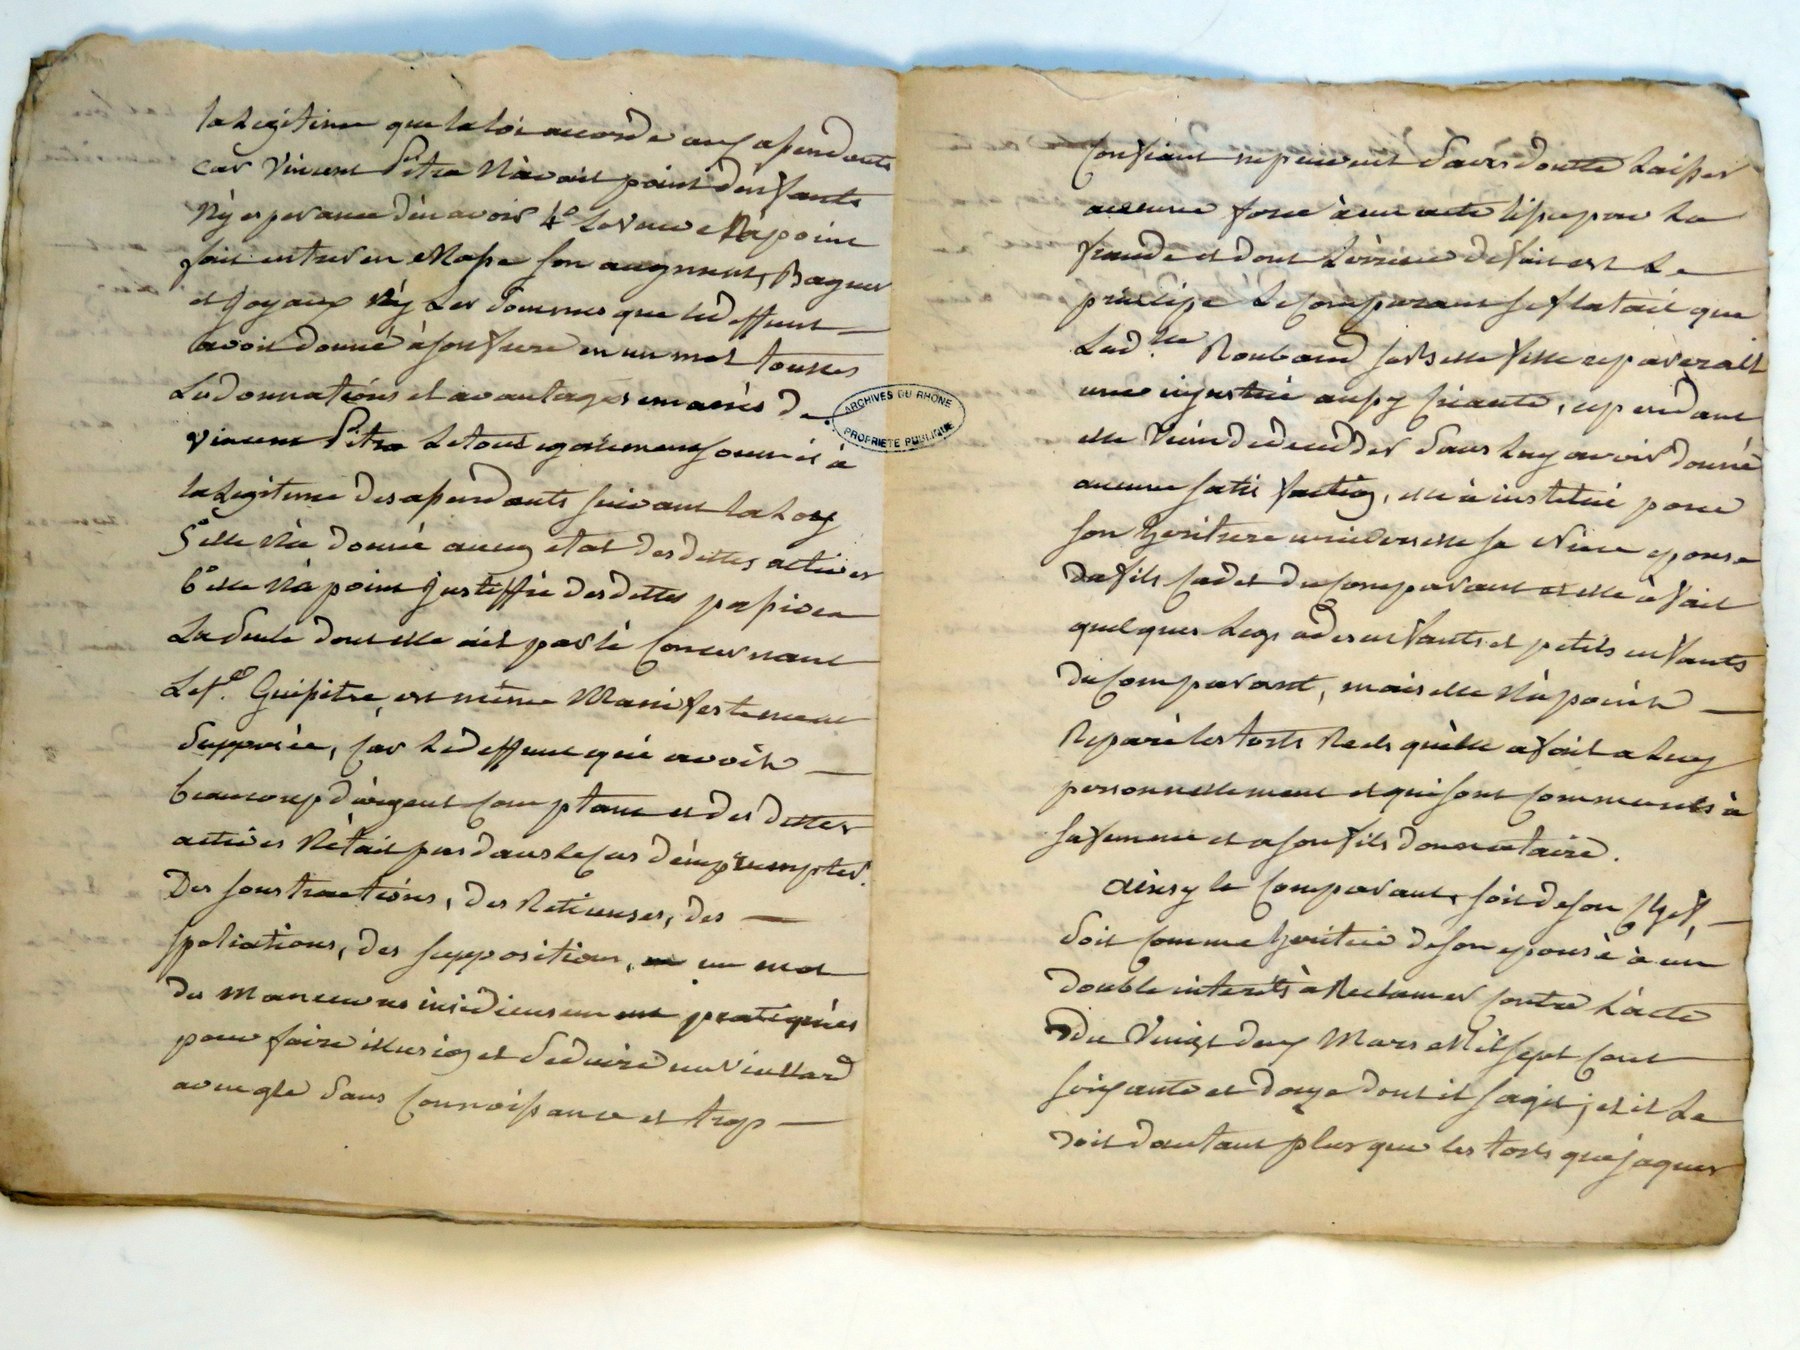 la legitime que la loi accorde aux assendants
car vincent Pitra N'avoit point d'enfants
N'y esperance d'en avoir 4° la veuve N'a point
fait entrer en Masse son augment, Bagues
et Joyaux N'y les sommes que led effunt
avoit donné a son frere en un mot touttes
les donnations et avantages emanés de
vincent Pitra le tout egalement soumis à
la legitime des assendants suivant la Loy
5° elle N'a donné aucun etat des dettes actives
6° elle N'a point Justiffié des dettes passives
La seule dont elle ait parlé Concernant
Le s.r Guipitre, est même Manifestement
supposée, Car led effunt qui avoit
beaucoup d'argent comptant et des dettes
actives N'etait pas dans le cas d'emprumpter.
Des soustractions, des Retenues, des
spoliations, des suppositions, un mot
des manœuvres insidieusement pratiquées
pour faire illusion et seduire un vieillard
aveugle sans Connoissance et trop
Confiant ne peuvent sans doutte Laisser
aucune force à un acte tissu par la
fraude et dont L'erreur de fait est Le
principe Le Comparant se flatait que
Lad.lle Roubaud sa Belle fille repareroit
une injustice aussy criante, cependant
elle vient de deceder sans luy avoir donné
aucune satisfaction, elle à institué pour
son heritiere universelle sa Niece epouse
du fils Cadet du Comparant et elle à fait
quelques legs a des enfants et petits enfants
du Comparant, mais elle N'a point
Reparé les torts Reels qu'elle a fait a luy
personnellement et qui sont communs à
sa femme et a son fils donnataire.
ainsy le Comparant, soit de son Chef,
soit Comme heritier de son epouse à un
double interets à Reclamer Contre L'acte
du Vingt deux Mars Mil sept Cent
soixante et douze dont il s'agit ; et il Le
doit d'autant plus que les torts que jaques
ARCHIVES DU RHONE
PROPRIETE PUBLIQUE